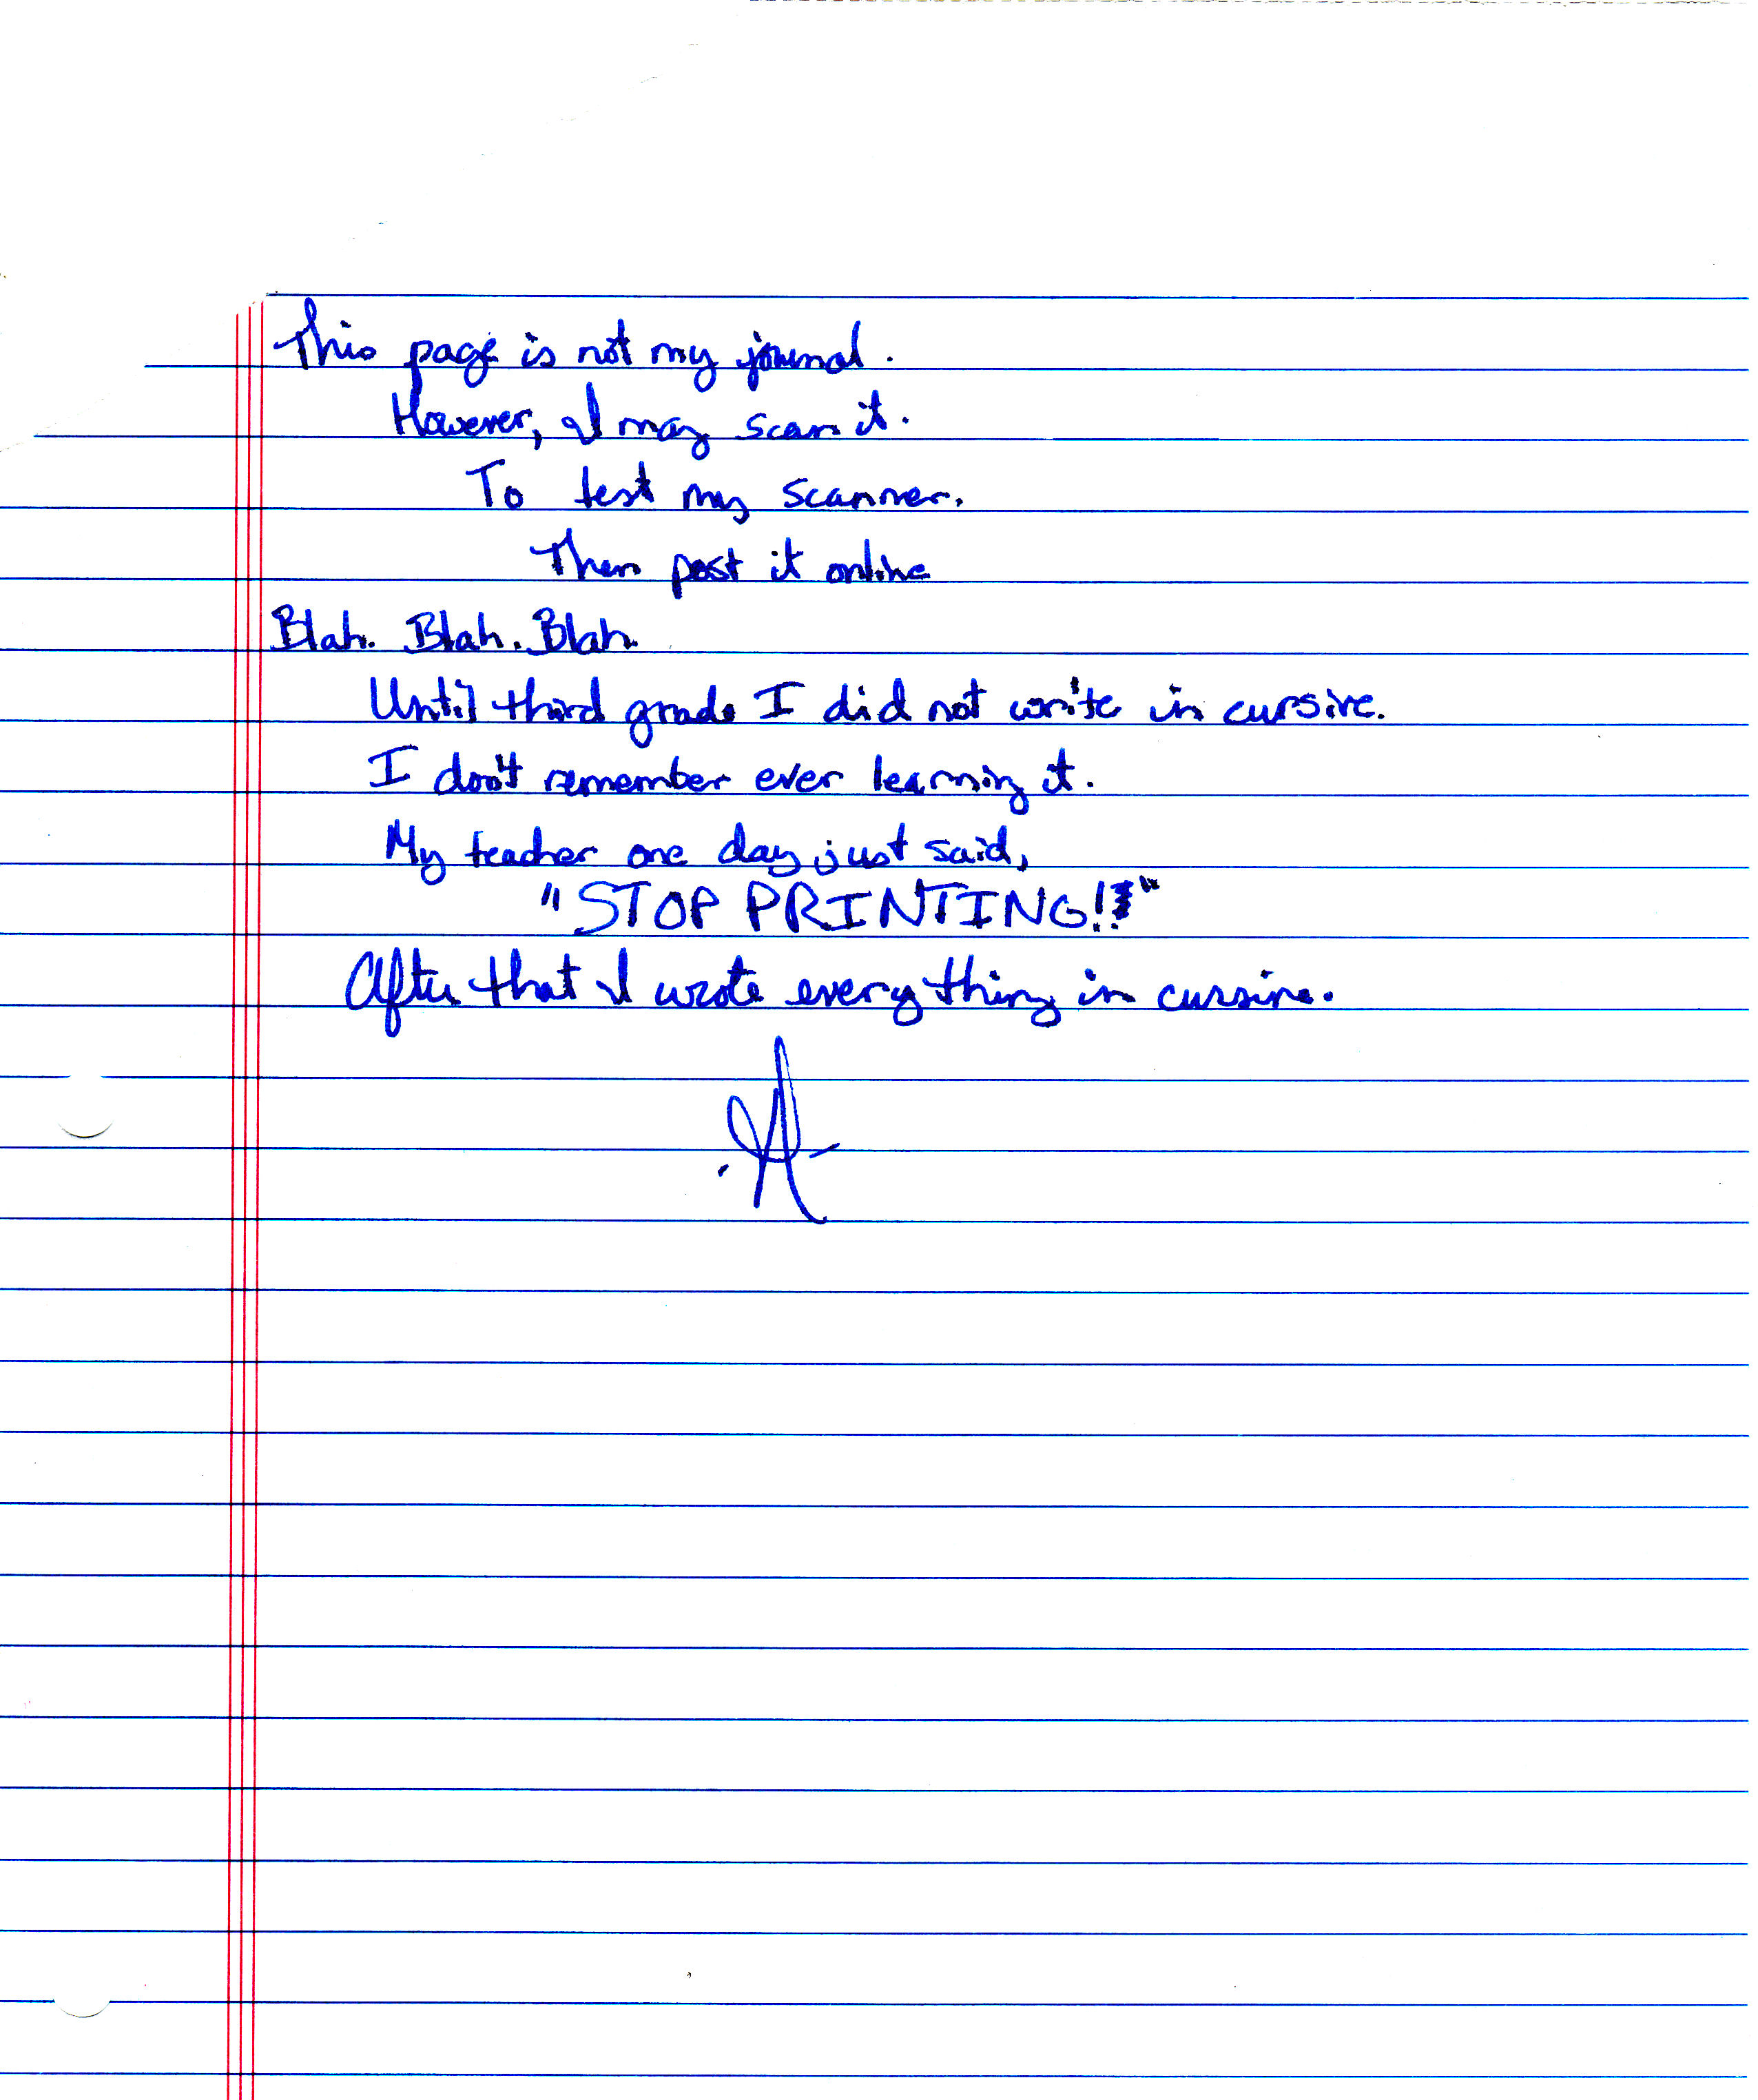 This page is not my journal.
However, I may scan it.
To test my scanner.
Then post it online
Blah. Blah. Blah.
Until third grade I did not write in cursive.
I don't remember ever learning it.
My teacher one day just said,
"STOP PRINTING!!"
After that I wrote everything in cursive.
A